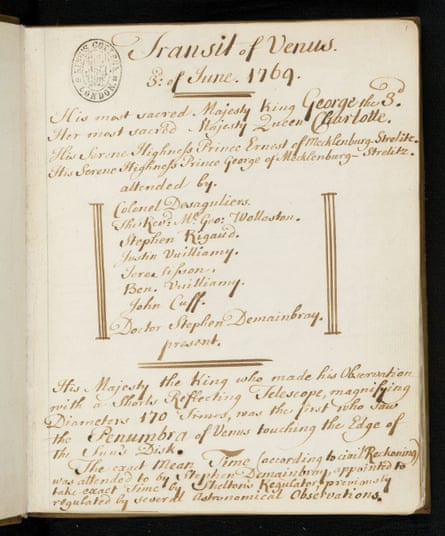 1
KING'S COLLEGE LONDON
Transit of Venus.
3: of June. 1769.
His most sacred Majesty King George the 3d
Her most sacred Majesty Queen Charlotte.
His Serene Highness Prince Ernest of Mecklenburg-Strelitz.
His Serene Highness Prince George of Mecklenburg-Strelitz.
attended by.
Colonel Desaguliers.
The Revd: Mr Geo: Wollaston.
Stephen Rigaud.
Justin Vuilliamy.
Jere: Sisson.
Ben. Vuilliamy.
John Cuff.
Doctor Stephen Demainbray.
present.
His Majesty the King who made his Observation
with a Shorts Reflecting Telescope, magnifying
Diameters 170 Times, was the first who saw
the Penumbra of Venus touching the Edge of
the Sun's Disk.
The exact Mean Time (according to civil Reckoning)
was attended to by Stephen Demainbray, appointed to
take exact Time by Shelton's Regulator, previously
regulated by several Astronomical Observations.